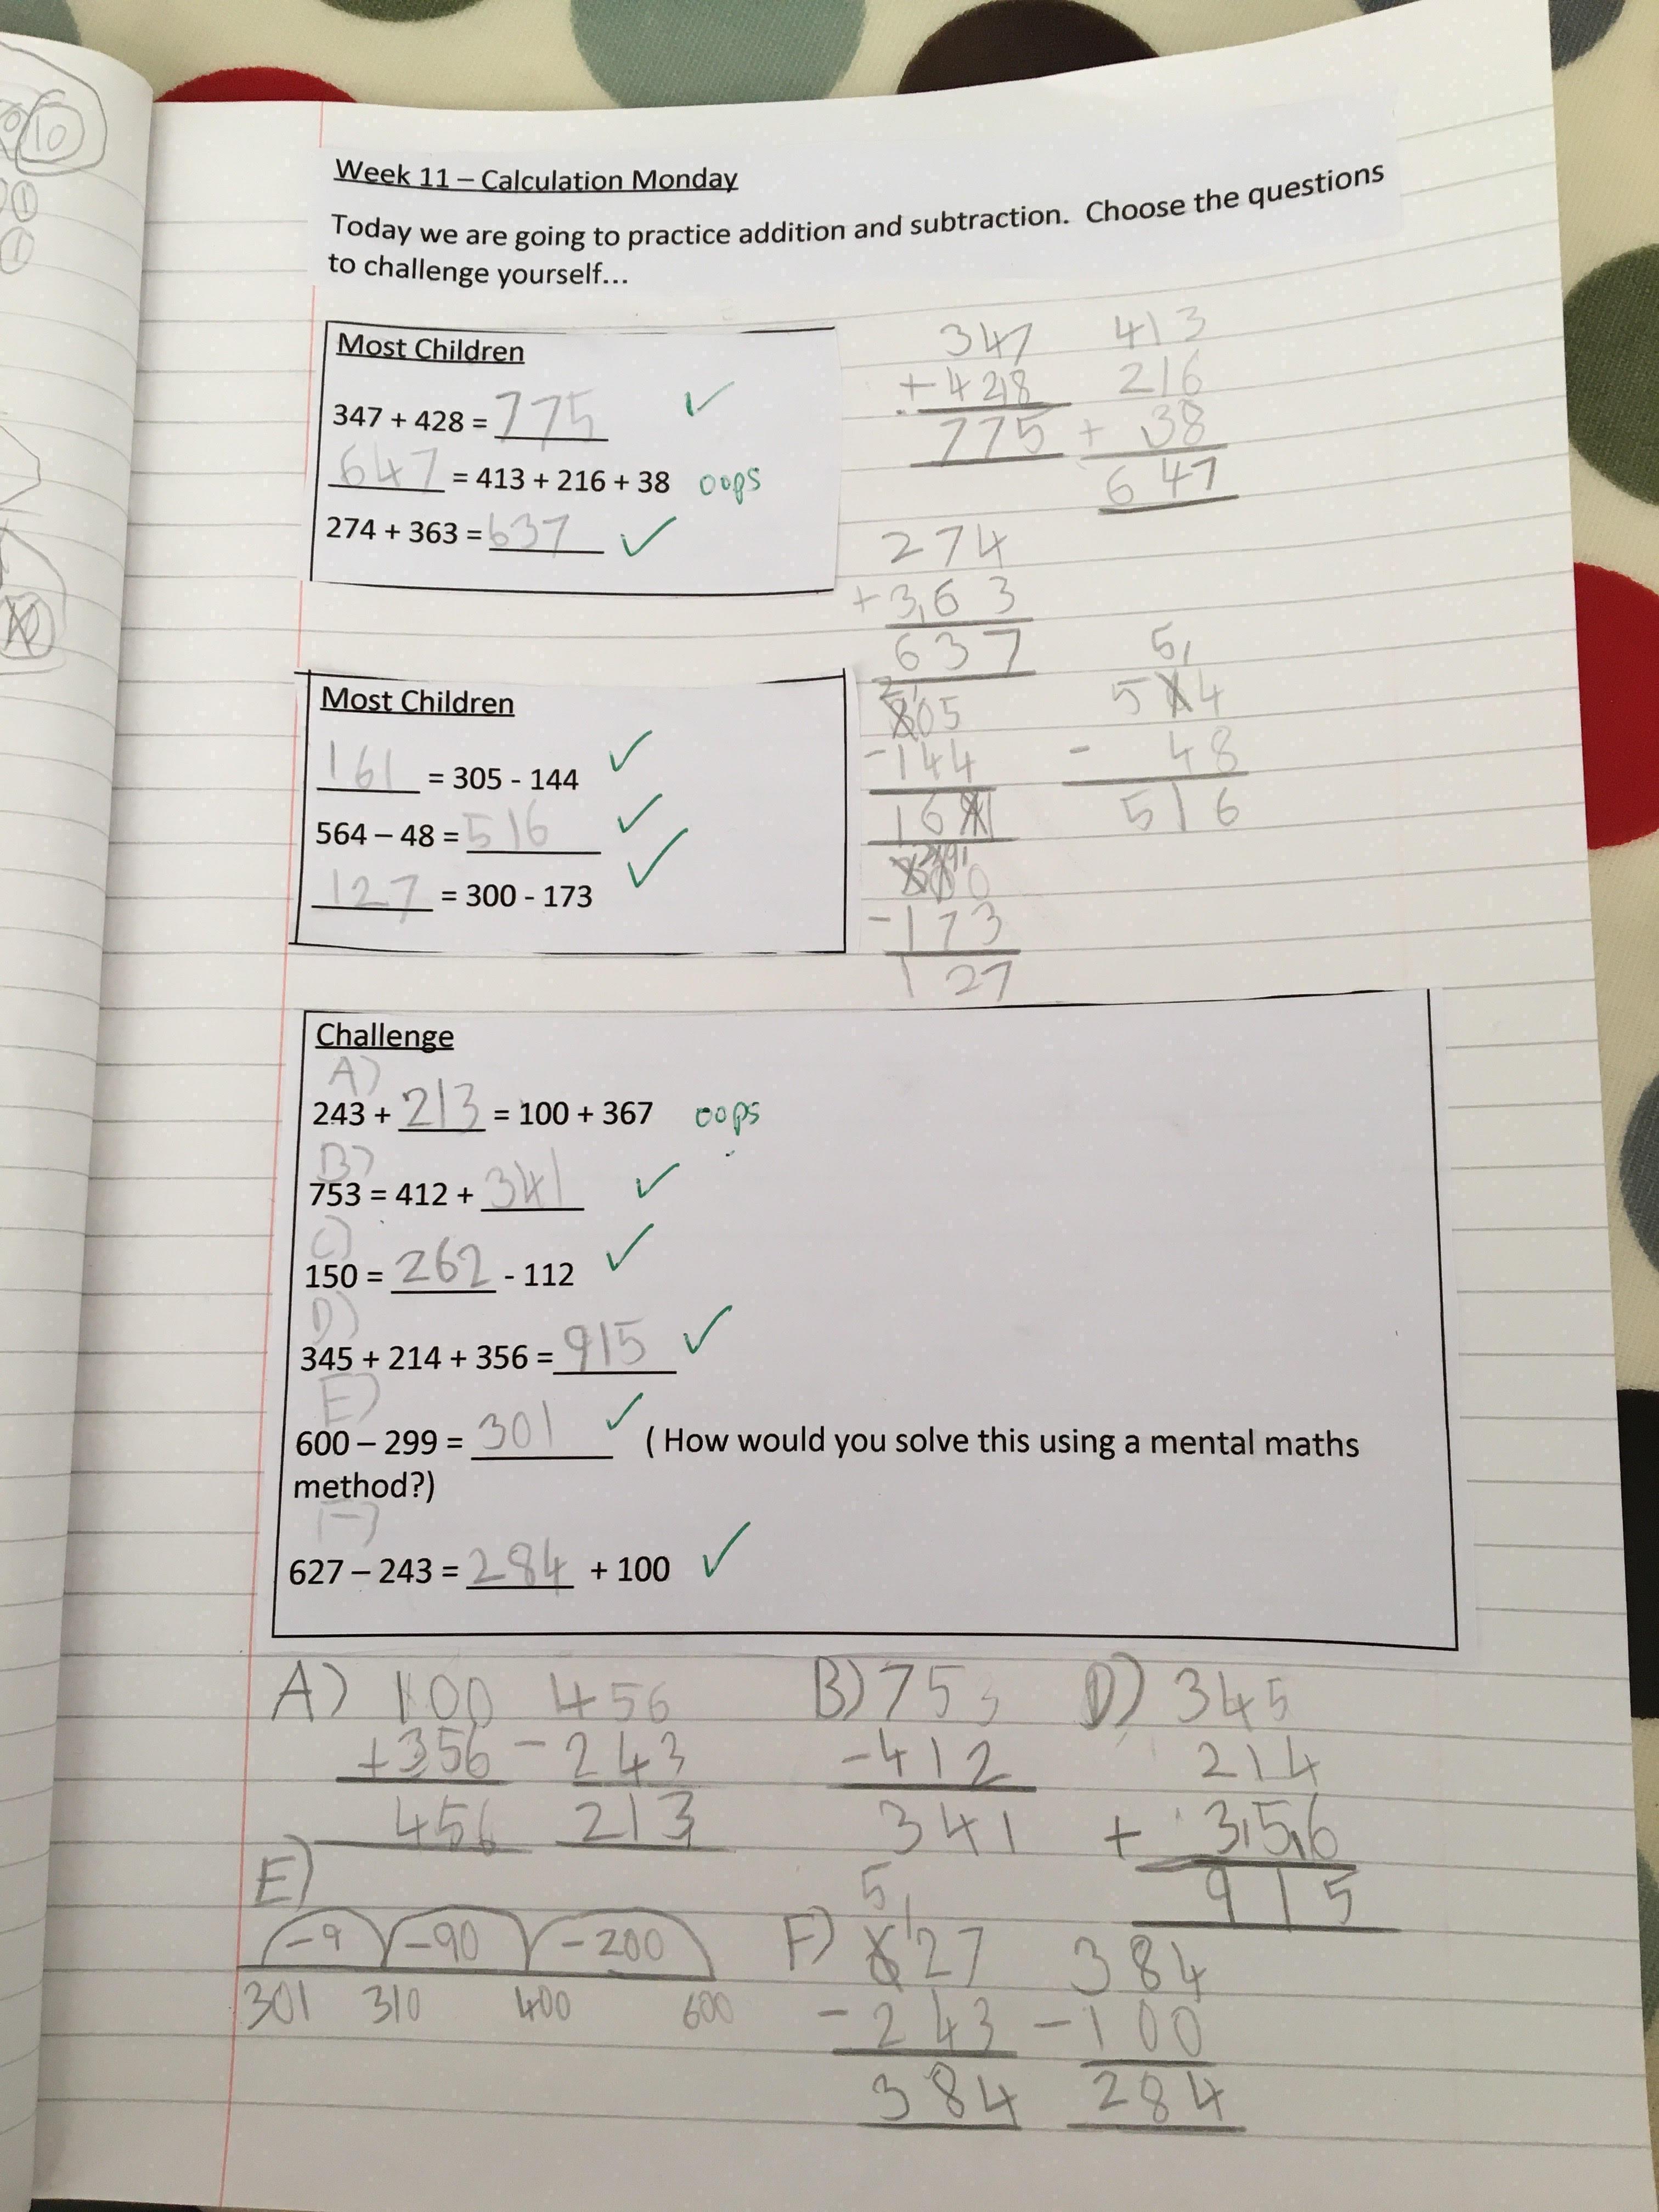 10
1
1
Week 11 – Calculation Monday
Today we are going to practice addition and subtraction. Choose the questions
to challenge yourself...
Most Children
347 + 428 = 775 ✓
647 = 413 + 216 + 38 oops
274 + 363 = 637 ✓
347
+ 428
775
413
216
+ 38
647
274
+ 363
637
Most Children
161 = 305 - 144 ✓
564 – 48 = 516 ✓
127 = 300 - 173 ✓
305
- 144
161
5 1
564
- 48
516
300
- 173
127
Challenge
A)
243 + 213 = 100 + 367 oops
B)
753 = 412 + 341 ✓
C)
150 = 262 - 112 ✓
D)
345 + 214 + 356 = 915 ✓
E)
600 – 299 = 301 ✓ ( How would you solve this using a mental maths
method?)
F)
627 – 243 = 284 + 100 ✓
A) 100
+ 356
456
456
- 243
213
B) 753
- 412
341
D) 345
214
+ 356
915
E)
-9 -90 -200
301 310 400 600
5 1
F) 627
- 243
384
384
- 100
284